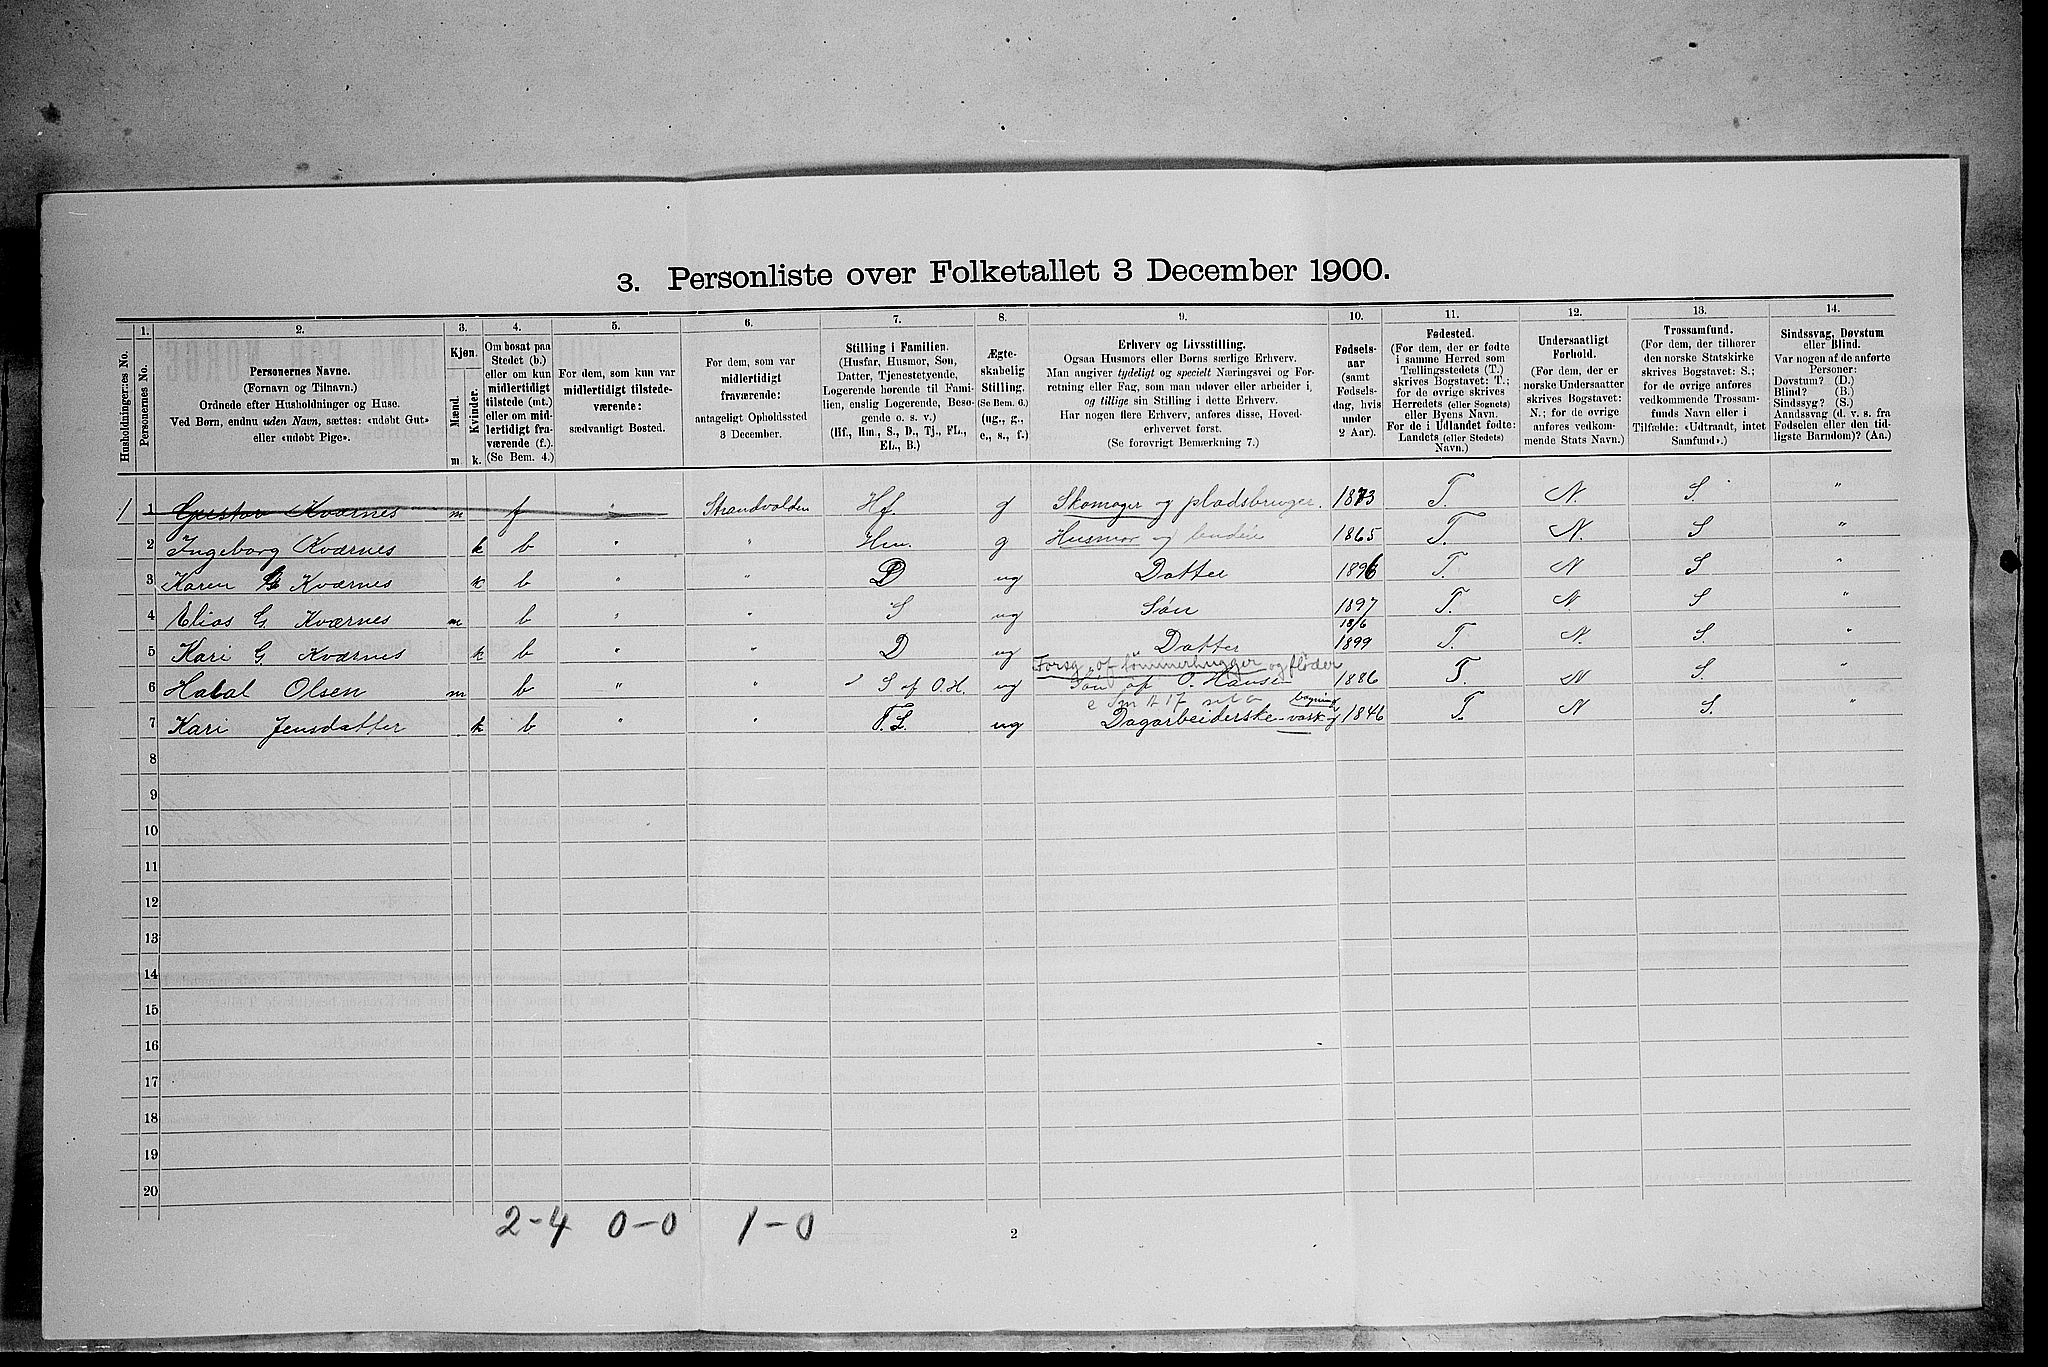 3. Personliste over Folketallet 3 December 1900.
1. 2. 3. 4. 5. 6. 7. 8. 9. 10. 11. 12. 13. 14.
Husholdningernes No.
Personernes No.
Personernes Navne.
(Fornavn og Tilnavn.)
Ordnede efter Husholdninger og Huse.
Ved Børn, endnu uden Navn, sættes: «udøbt Gut»
eller «udøbt Pige».
Kjøn.
Mænd.
Kvinder.
m k.
Om bosat paa
Stedet (b.)
eller om kun
midlertidigt
tilstede (mt.)
eller om mid-
lertidigt fra-
værende (f.).
(Se Bem. 4.)
For dem, som kun var
midlertidigt tilstede-
værende:
sædvanligt Bosted.
For dem, som var
midlertidigt
fraværende:
antageligt Opholdssted
3 December.
Stilling i Familien.
(Husfar, Husmor, Søn,
Datter, Tjenestetyende,
Logerende hørende til Fami-
lien, enslig Logerende, Besø-
gende o. s. v.)
(Hf., Hm., S., D., Tj., FL.,
EL., B.)
Ægte-
skabelig
Stilling.
(Se Bem. 6.)
(ug., g.,
e., s., f.)
Erhverv og Livsstilling.
Ogsaa Husmors eller Børns særlige Erhverv.
Man angiver tydeligt og specielt Næringsvei og For-
retning eller Fag, som man udøver eller arbeider i,
og tillige sin Stilling i dette Erhverv.
Har nogen flere Erhverv, anføres disse, Hoved-
erhvervet først.
(Se forøvrigt Bemærkning 7.)
Fødsels-
aar
(samt
Fødsels-
dag, hvis
under
2 Aar).
Fødested.
(For dem, der er fødte
i samme Herred som
Tællingsstedets (T.)
skrives Bogstavet: T.;
for de øvrige skrives
Herredets (eller Sognets)
eller Byens Navn.
For de i Udlandet fødte:
Landets (eller Stedets)
Navn.)
Undersaatligt
Forhold.
(For dem, der er
norske Undersaatter
skrives Bogstavet:
N.; for de øvrige
anføres vedkom-
mende Stats Navn.)
Trossamfund.
(For dem, der tilhører
den norske Statskirke
skrives Bogstavet: S.;
for de øvrige anføres
vedkommende Trossam-
funds Navn eller i
Tilfælde: «Udtraadt, intet
Samfund».)
Sindssvag, Døvstum
eller Blind.
Var nogen af de anførte
Personer:
Døvstum? (D.)
Blind? (B.)
Sindssyg? (S.)
Aandssvag (d. v. s. fra
Fødselen eller den tid-
ligste Barndom)? (Aa.)
1 1 Gustav Kværnes m f " Strandvolden Hf g Skomager og pladsbruger. 1873 T. N. S. "
2 Ingeborg Kværnes k b " " Hm. g Husmor og 1865 T. N. S "
3 Karen G Kværnes k b " " D ug Datter 1896 T. N S "
4 Elias G. Kværnes m b " " S ug Søn 1897 T. N. S "
5 Kari G. Kværnes k b " " D ug Datter 18/6 1899 T. N. S. "
Forsg. af tømmerhugger og fløder
6 Olsen m b " " S af O. H. ug Søn af O. Hansen 1886 T. N S. "
7 Kari Jensdatter k b " " F. L. ug Dagarbeiderske - vask og bagning 1846 T. N S. "
8
9
10
11
12
13
14
15
16
17
18
19
20
2-4 0-0 1-0
2